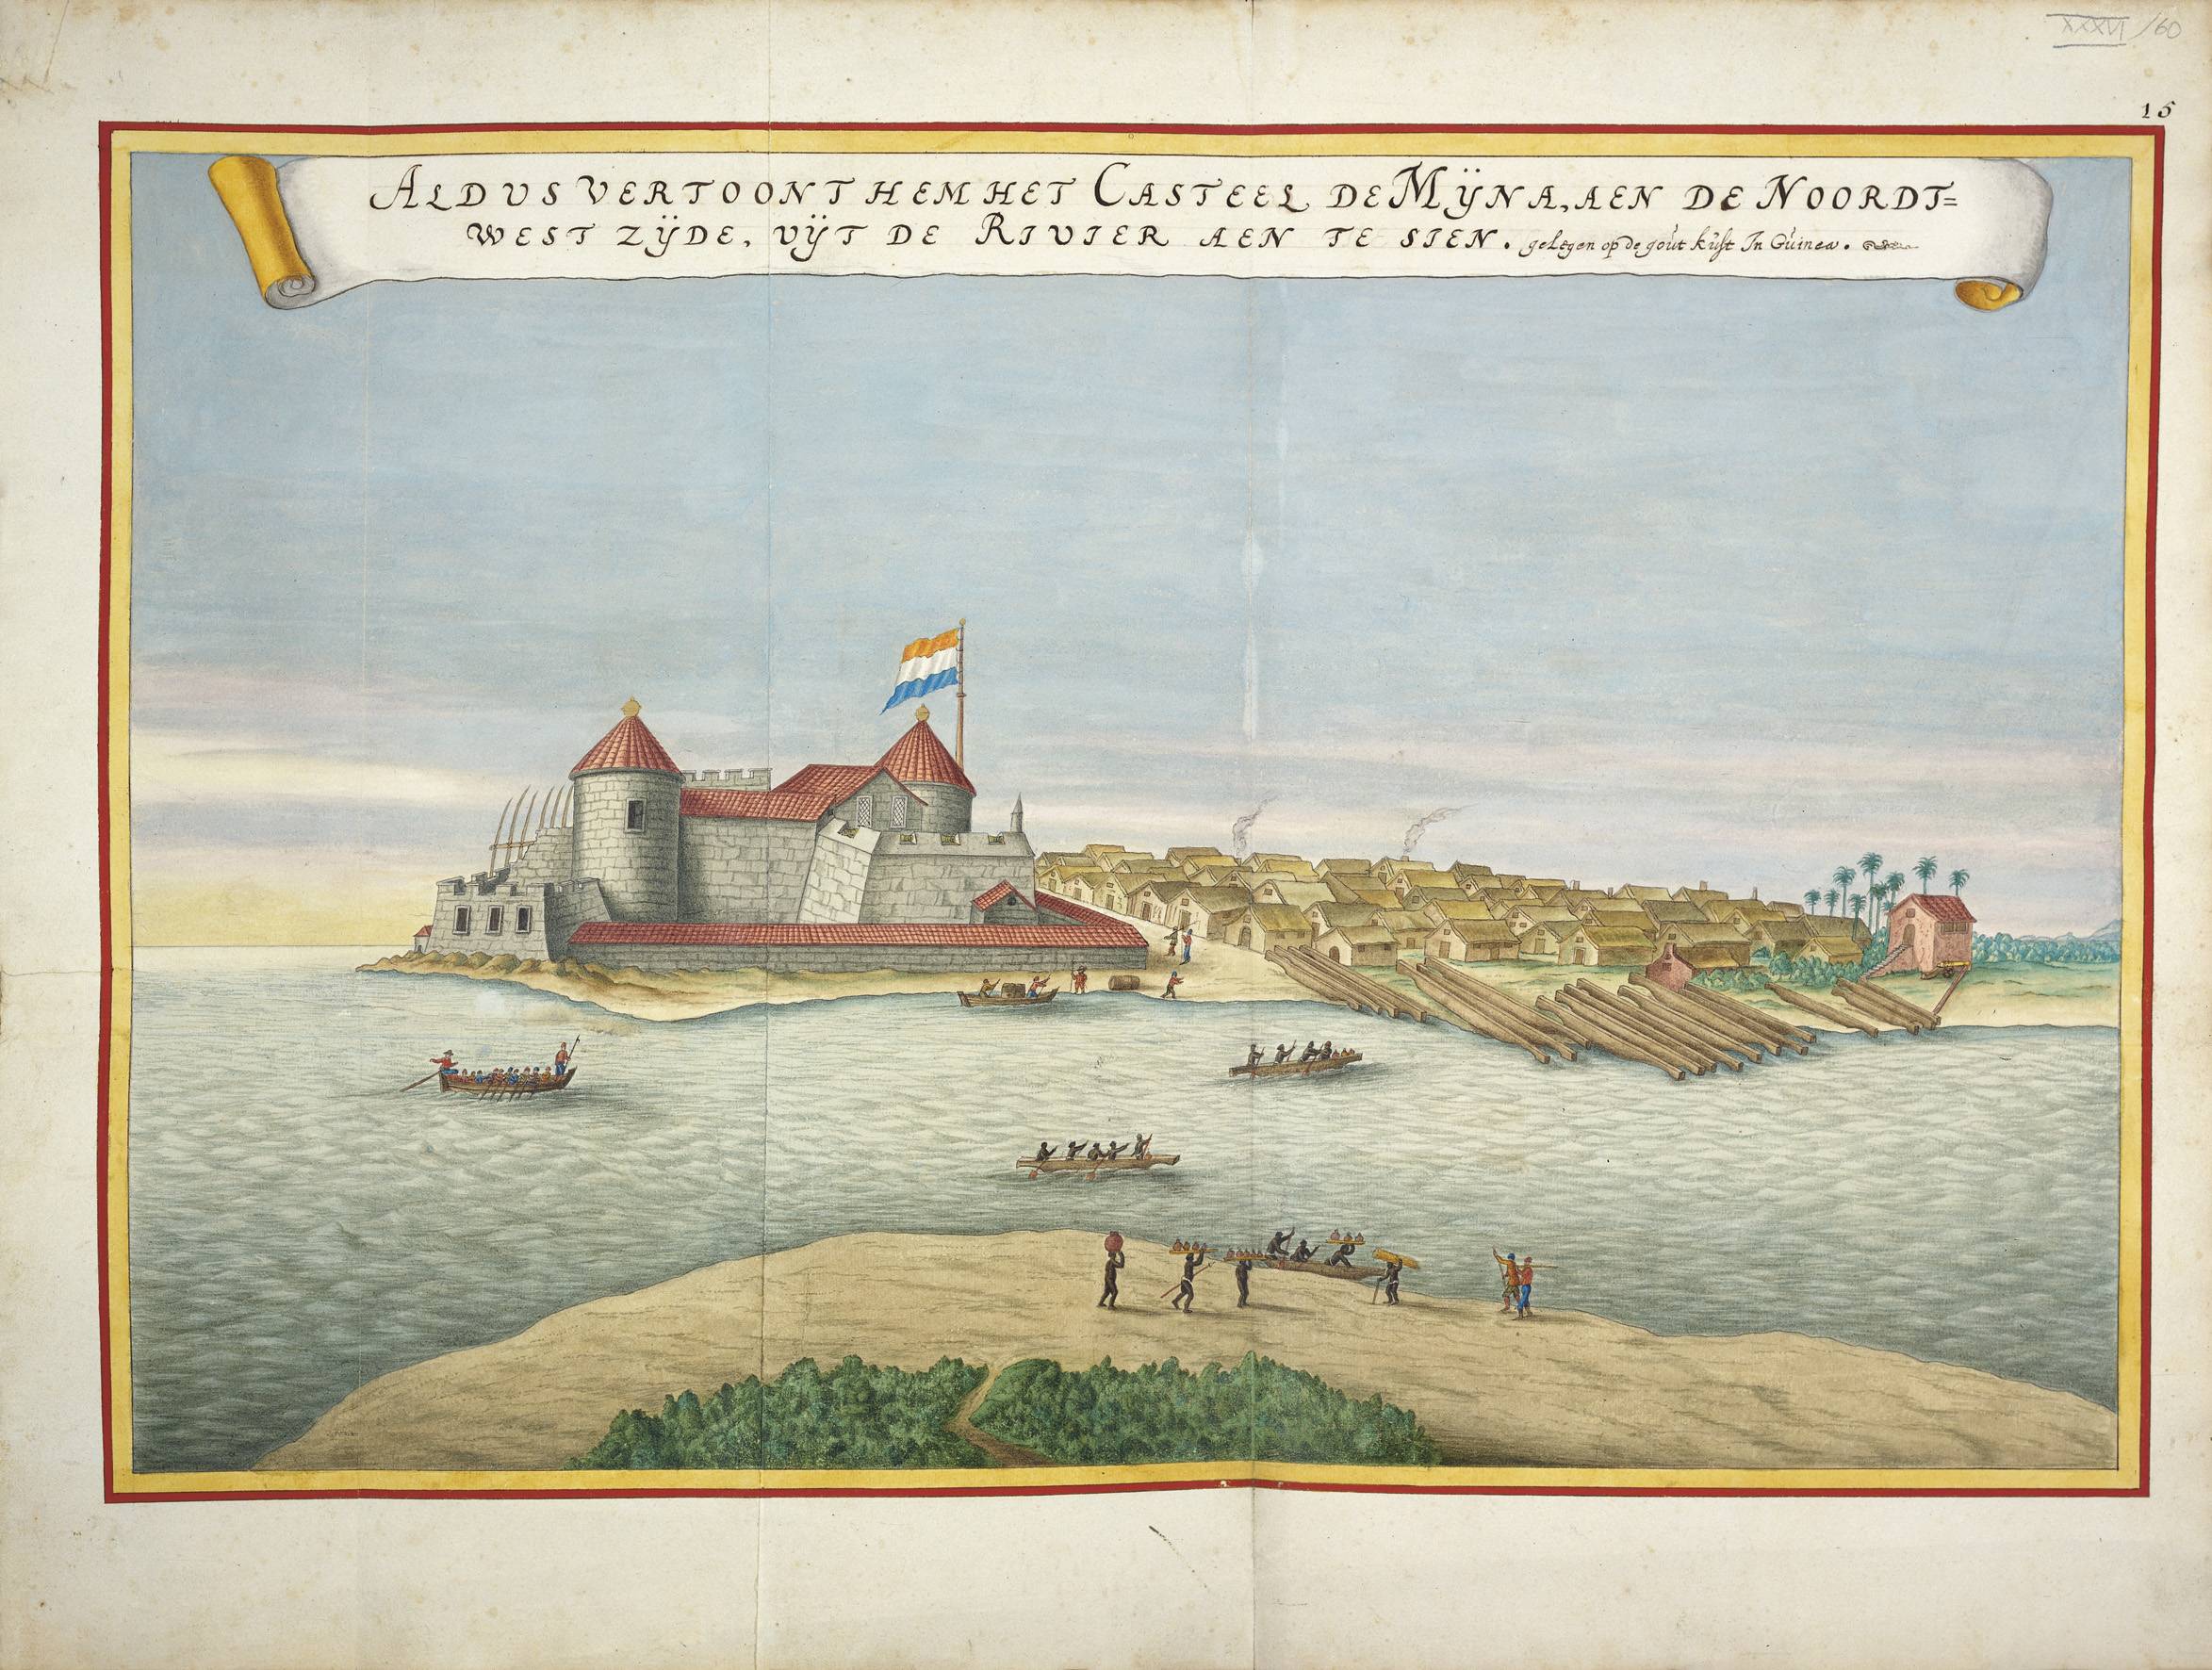 XXXVI /60
15
ALDUS VERTOONT HEM HET CASTEEL DE MŸNA, AEN DE NOORDT=
WEST ZŸDE, VŸT DE RIVIER AEN TE SIEN. gelegen op de goút kúst In Gúinea.